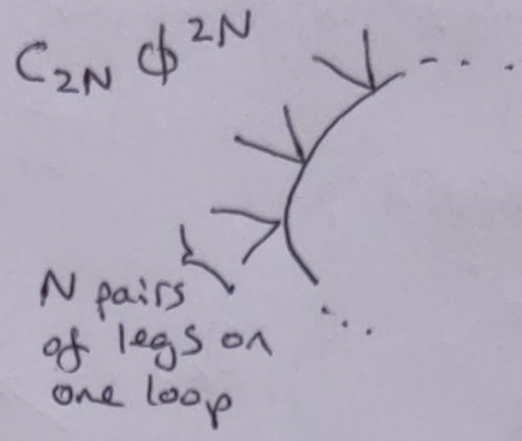 C₂ₙ ϕ²ᴺ
N pairs
of legs on
one loop